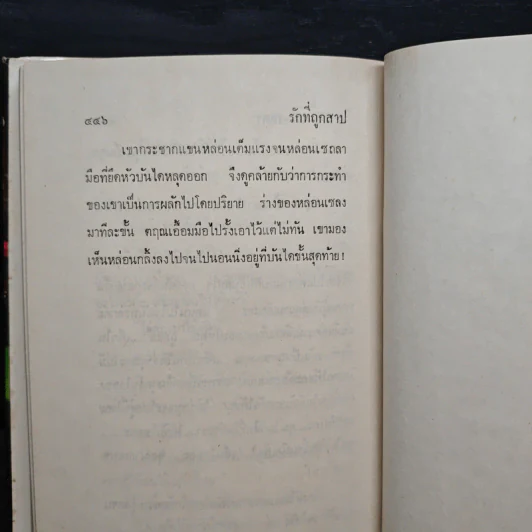 ๔๔๖ รักที่ถูกสาป
เขากระชากแขนหล่อนเต็มแรงจนหล่อนเซถลา
มือที่ยึดหัวบันไดหลุดออก จึงดูคล้ายกับว่าการกระทำ
ของเขาเป็นการผลักไปโดยปริยาย ร่างของหล่อนเซลง
มาทีละขั้น ตฤณเอื้อมมือไปรั้งเอาไว้แต่ไม่ทัน เขามอง
เห็นหล่อนกลิ้งลงไปจนไปนอนนิ่งอยู่ที่บันไดขั้นสุดท้าย!